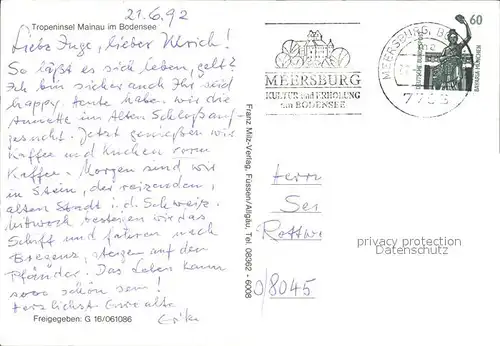 21.6.92
Tropeninsel Mainau im Bodensee
Liebe Inge, lieber Ulrich!
So läßt es sich leben, gelt?
Ich bin sicher auch Ihr seid
happy. Heute haben wir die
Annette im Alten Schloß auf-
gesucht. Jetzt genießen wir
Kaffee und Kuchen vom
Kaffee. Morgen sind wir
in Stein, der reizenden,
alten Stadt i. d. Schweiz.
Mittwoch besteigen wir das
Schiff und fahren nach
Bregenz, steigen auf den
Pfänder. Das Leben kann
sooo schön sein!
Herzlichst Eure alte
Erika
Freigegeben: G 16/061086
Franz Milz-Verlag, Füssen/Allgäu, Tel. 08362 - 6008
MEERSBURG
KULTUR und ERHOLUNG
am BODENSEE
MEERSBURG, BO
7758
60
DEUTSCHE BUNDESPOST
BAVARIA MÜNCHEN
Herrn
Rottwe
privacy protection
Datenschutz
8045